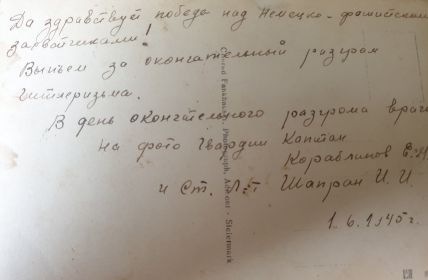 Да здравствует победа над Немецко-фашискими
захватчиками!
Выпьем за окончательный разгром
гитлеризма.
В день окончательного разгрома врага
На фото Гвардии Капитан
Кораблинов Е.
и Ст. Л-т Шапран И. И.
1.6.1945 г.
Photograph, Admont - Steiermark